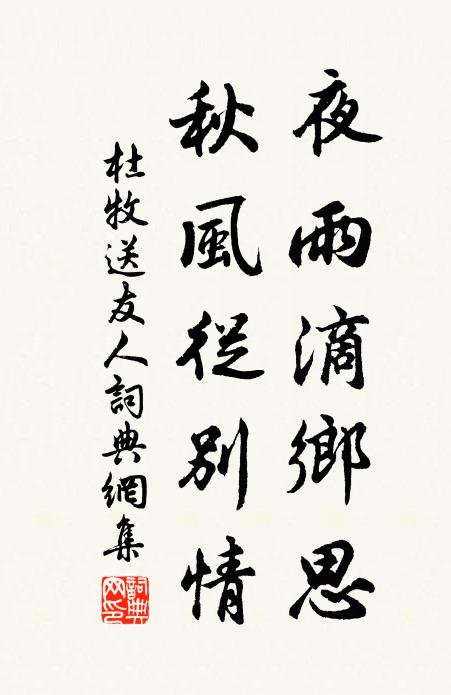 夜雨滴鄉思
秋風從別情
杜牧送友人詞典網集
詞典網印